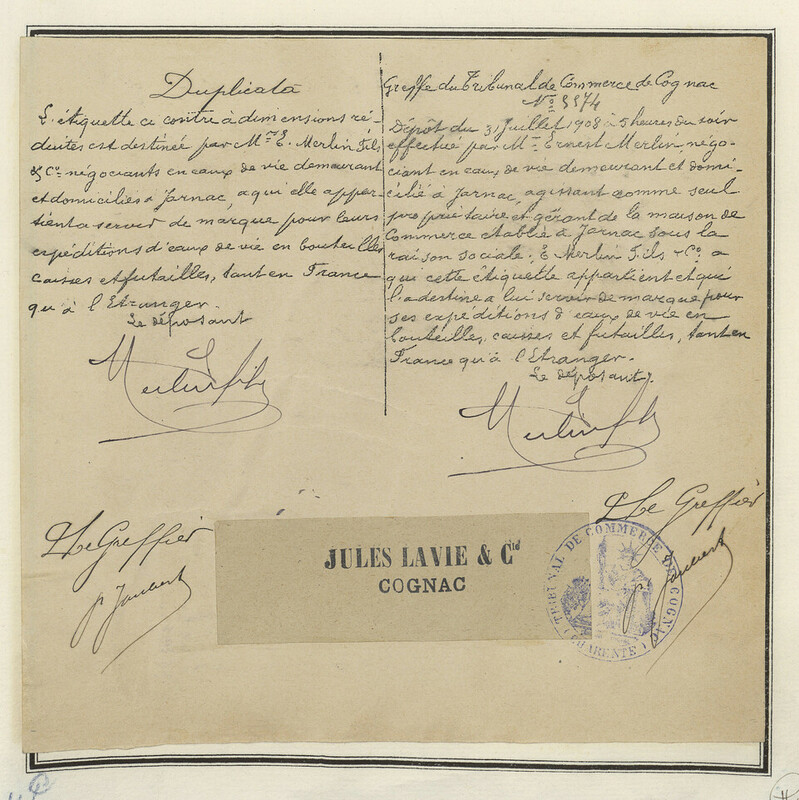 Duplicata
L'étiquette ci contre à dimensions ré-
duites est destinée par Mr E. Merlin Fils
& Co négociants en eaux de vie demeurant
et domiciliés à Jarnac, a qui elle appar-
tient a servir de marque pour leurs
expéditions d'eaux de vie en bouteilles
caisses et futailles, tant en France
qu'à l'Etranger.
Le déposant
Merlin fils
Greffe du Tribunal de Commerce de Cognac
No 5574
Dépôt du 31 Juillet 1908 à 5 heures du soir
effectué par Mr Ernest Merlin, négo-
ciant en eaux de vie demeurant et domi-
cilié à Jarnac, agissant comme seul
propriétaire et gérant de la maison de
Commerce établie à Jarnac sous la
raison sociale: E Merlin Fils & Co. a
qui cette étiquette appartient et qui
l'a destine a lui servir de marque pour
ses expéditions d'eaux de vie en
bouteilles, caisses et futailles, tant en
France qu'à l'Etranger.
Le déposant.
Merlin fils
Le Greffier
Le Greffier
JULES LAVIE & Cie
COGNAC
TRIBUNAL DE COMMERCE DE COGNAC
(CHARENTE)